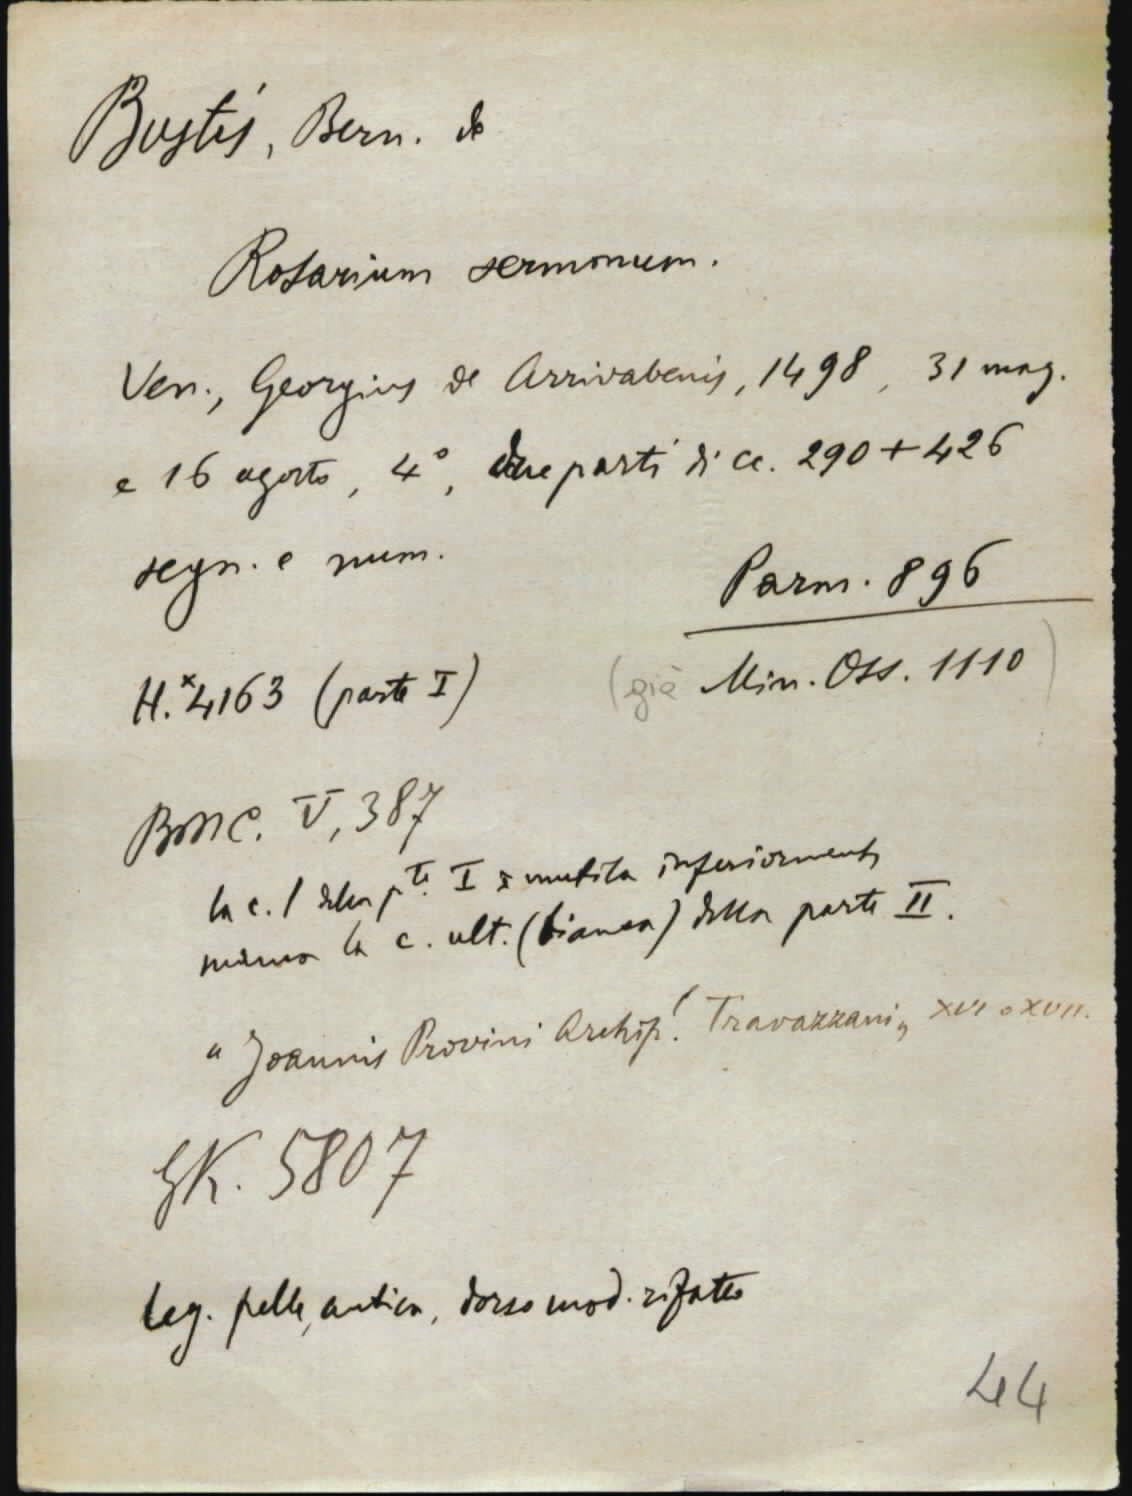 Bustis, Bern. de
Rosarium sermonum.
Ven., Georgius de Arrivabenis, 1498, 31 mag.
e 16 agosto, 4°, due parti di cc. 290 + 426
segn. e num.
Parm. 896
H.* 4163 (parte I)
(già Min. Oss. 1110)
BMC. V, 387
la c. 1 della p.te I è mutila inferiormente
manca la c. ult. (bianca) della parte II.
"Joannis Provini Archip.! Travazzani„ XVI o XVII.
GK. 5807
leg. pelle, antica, dorso mod. rifatto
44